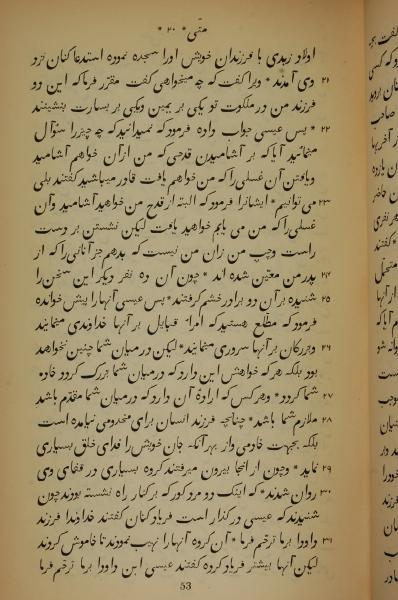 متی * ۲۰ *
اولاد زبدی با فرزندان خویش اورا سجده نموده استدعا کنان نزد
۲۱ وی آمدند * ویرا گفت که چه میخواهی گفت مقرر فرما که این دو
فرزند من در ملکوت تو یکی بر یمین ویکی بر یسارت بنشینند
۲۲ * پس عیسی جواب داده فرمود که نمیدانید که چه چیز را سؤال
مینمائید آیا که بر آشامیدن قدحی که من از آن خواهم آشامید
ویافتن آن غسلی را که من خواهم یافت قادر میباشید گفتند بلی
۲۳ می توانیم * ایشانرا فرمود که البته از قدح من خواهید آشامید وآن
غسلی را که من می یابم خواهید یافت لیکن نشستن بر دست
راست وچپ من زان من نیست که بدهم جز آنانی را که از
۲۴ پدر من معین شده اند * چون آن ده نفر دیگر این سخن را
۲۵ شنیده بر آن دو برادر خشم گرفتند * پس عیسی آنها را پیش خوانده
فرمود که مطلع هستید که امراء قبایل بر آنها خداوندی مینمایند
۲۶ وبزرگان بر آنها سروری مینمایند * لیکن در میان شما چنین نخواهد
بود بلکه هر که خواهش این دارد که در میان شما بزرگ گردد خادم
۲۷ شما گردد * وهر کس که ارادۀ آن دارد که در میان شما مقدّم باشد
۲۸ ملازم شما باشد * چنانچه فرزند انسان برای مخدومی نیامده است
بلکه بجهت خادمی واز بهر آنکه جان خویش را فدای خلق بسیاری
۲۹ نماید * وچون از آنجا بیرون میرفتند گروه بسیاری در قفای وی
۳۰ روان شدند * که اینک دو مرد کور که بر کنار راه نشسته بودند چون
شنیدند که عیسی در گذار است فریاد کنان گفتند خداوندا فرزند
۳۱ داودا برما ترحّم فرما * آن گروه آنها را نهیب نمودند تا خاموش گردند
لیکن آنها بیشتر فریاد کرده گفتند عیسی ابن داودا برما ترحّم فرما
53